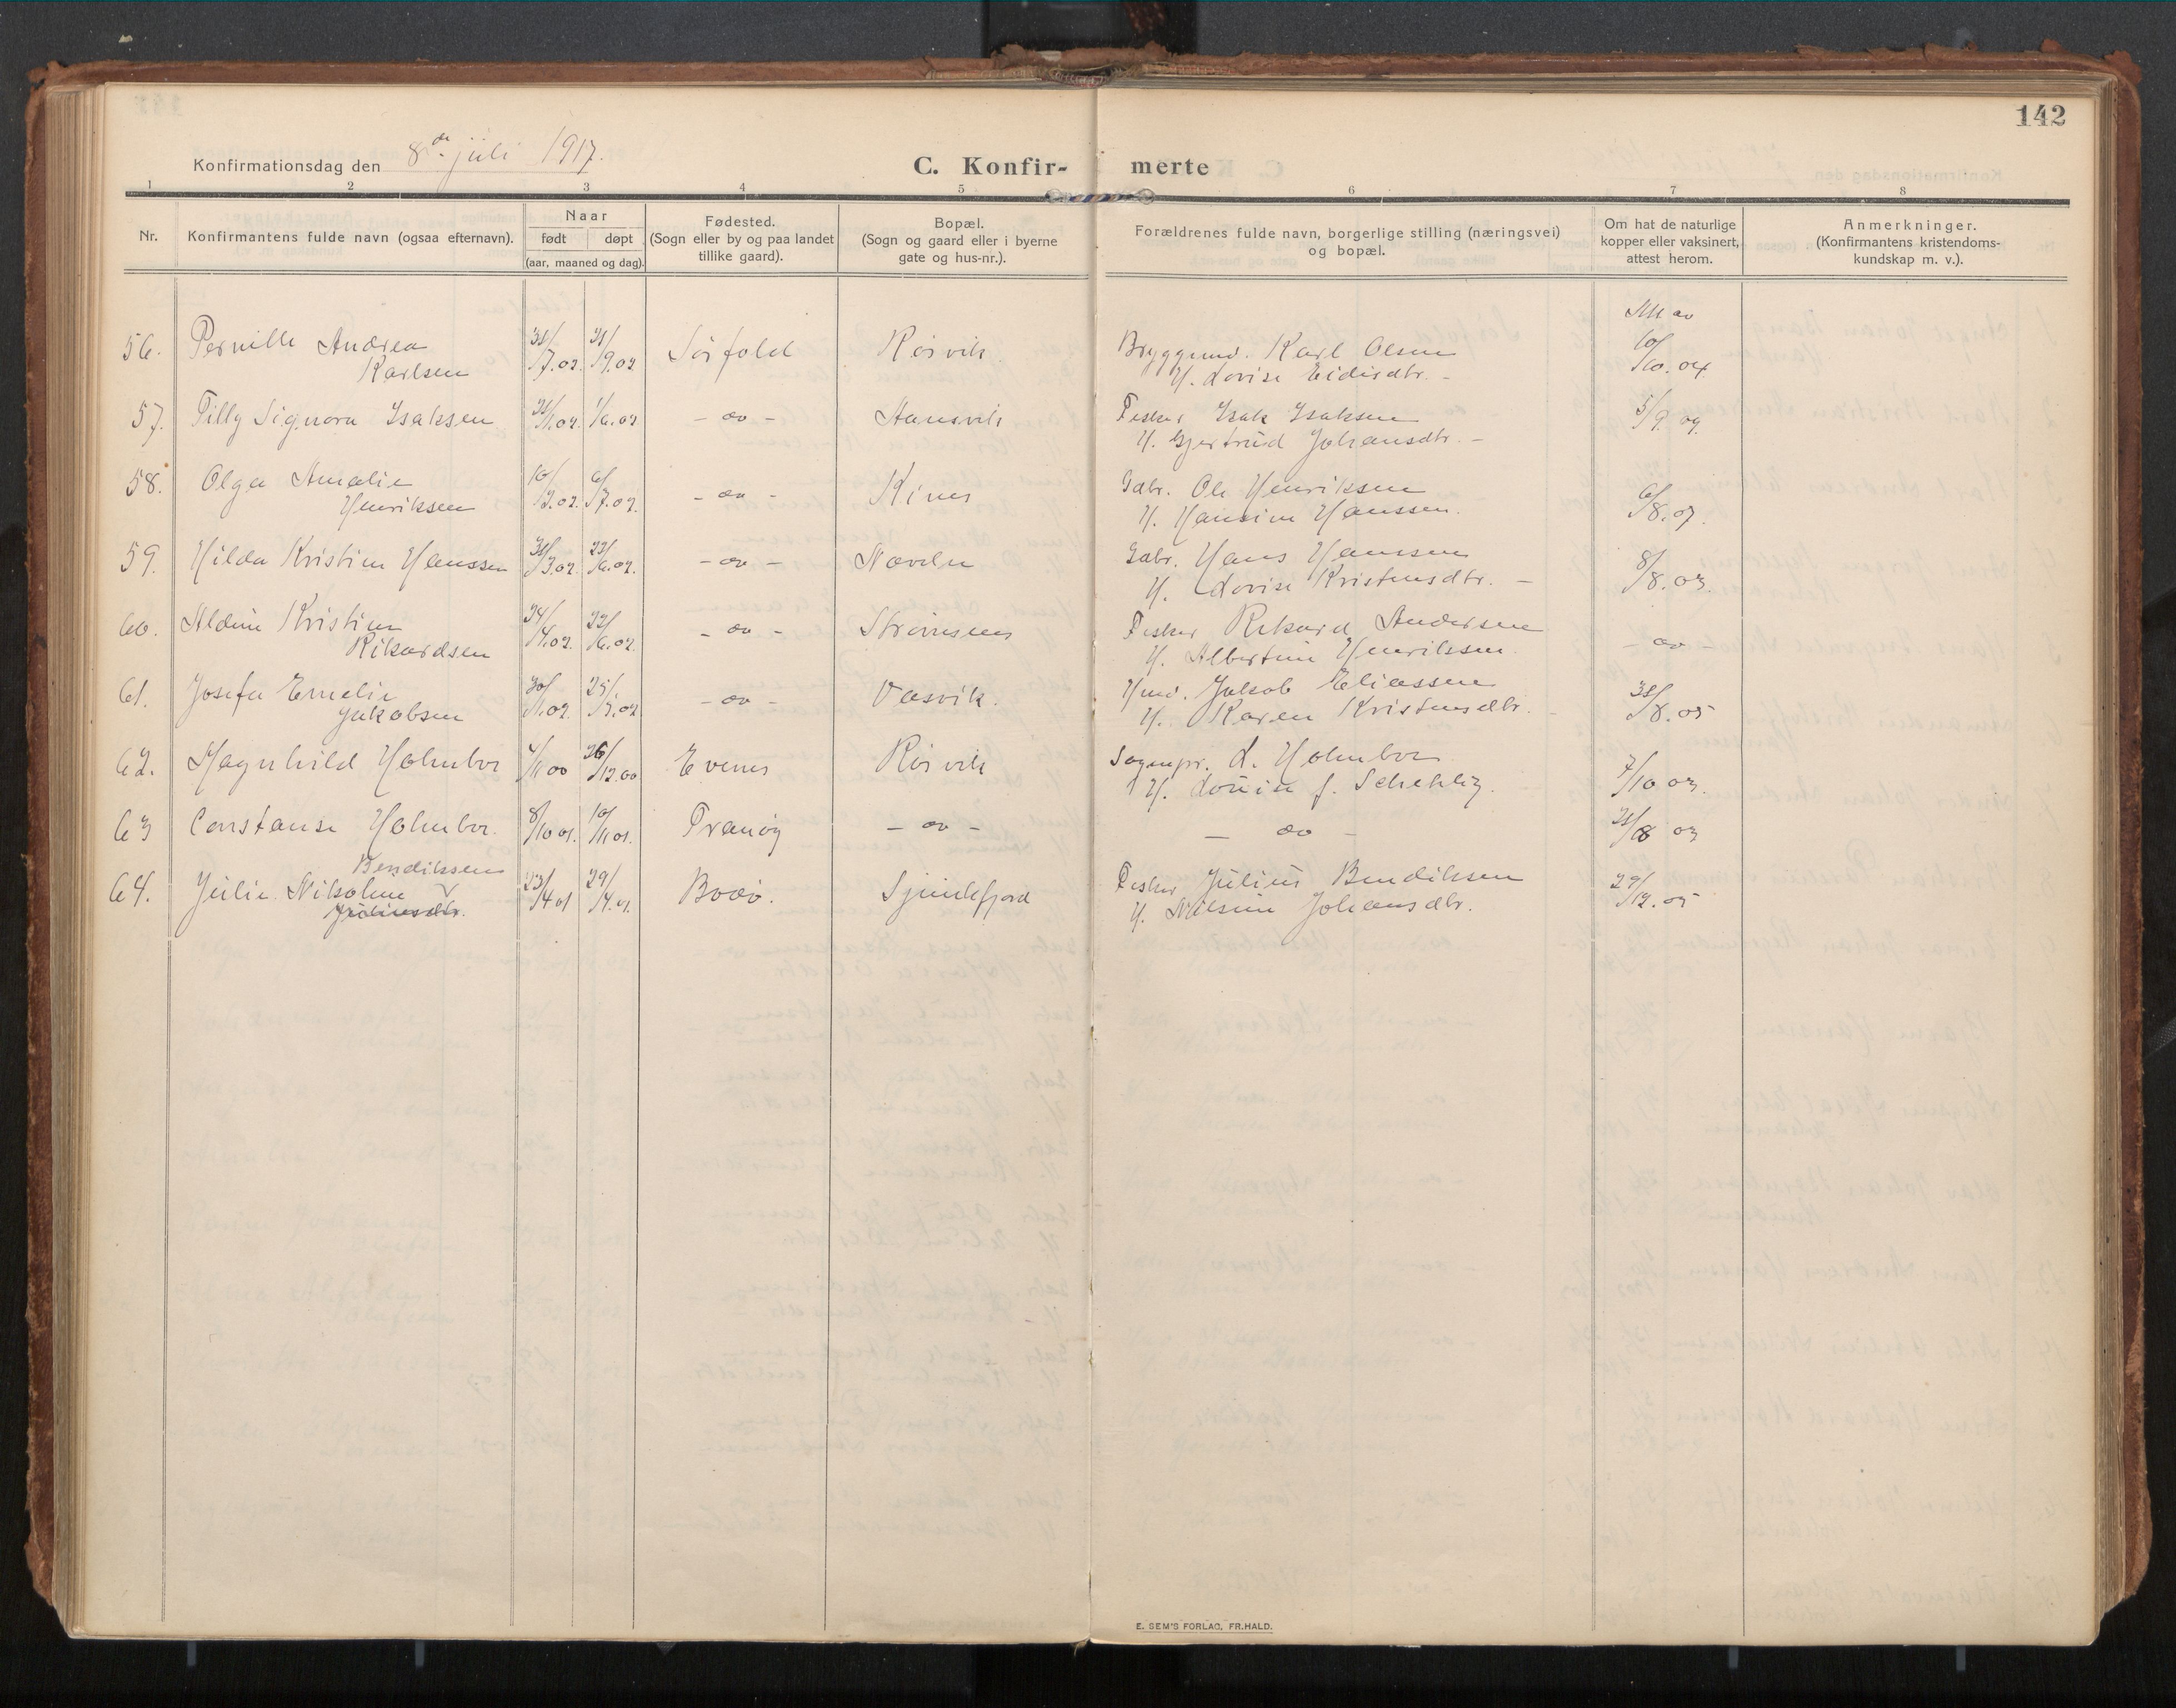 142
Konfirmationsdag den 8de juli 1917.
C. Konfir- merte
1 2 3 4 5 6 7 8
Nr.
Konfirmantens fulde navn (ogsaa efternavn).
Naar
født døpt
(aar, maaned og dag).
Fødested.
(Sogn eller by og paa landet
tillike gaard).
Bopæl.
(Sogn og gaard eller i byerne
gate og hus-nr.).
Forældrenes fulde navn, borgerlige stilling (næringsvei)
og bopæl.
Om hat de naturlige
kopper eller vaksinert,
attest herom.
Anmerkninger.
(Konfirmantens kristendoms-
kundskap m. v.).
56. Pernille Andrea 31/7.02. 21/9.02 Sørfold Rørvik Bryggemd. Karl Olsen 10/10.04
Karlsen H. Lovise Eidisdtr. -
57. Tilly Signora Isaksen /1.02. 1/6.02 - do - Hansvik Fisker Isak Isaksen 5/9.09.
H. Gjertrud Johansdtr. -
58. Olga Amalie 10/3.02. 6/7.02. - do - Kines Gdbr. Ole Henriksen 6/8.07.
Henriksen H. Hansine Hanssen.
59. Hilda Kristine Hanssen 31/3.02. 22/6.02. - do - Næveln Gdbr. Hans Hanssen 8/8.03.
H. Lovise Kristensdtr. -
60. Aldine Kristine 24/4.02. 22/6.02. - do - Strømsnes Fisker Rikard Andersen - do -
Rikardsen H. Albertine Henriksen.
61. Josefa Emelie 20/1.02. 25/3.02 - do - Vasvik. Hmd. Jakob Eliassen 31/8.05
Jakobsen H. Karen Kristensdtr. -
62. Magnhild Holmboe 4/11 00 26/12.00 Evenes Rørvik Sognepr. L. Holmboe 7/10 03.
H. Louise f. Schehlig.
63 Constanse Holmboe. 8/10 01. 10/11 01. Tranøy - do - - do - 21/8 03
Bendiksen
64. Julie Nikoline 23/4 01 29/4.01. Bodø. Sjunkfjord Fisker Julius Bendiksen 29/12.05
Juliusdtr. H. Nilsine Johansdtr.
E. SEM'S FORLAG, FR.HALD.